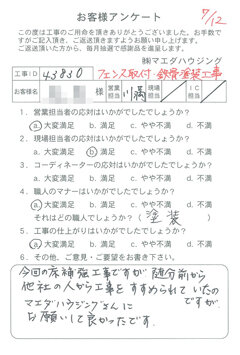 7/12
お客様アンケート
この度は工事のご用命を頂きありがとうございました。お手数で
すがご記入頂き、ご返送頂きますようお願い申し上げます。
ご返送頂いた方から、毎月抽選で感謝品を進呈します。
㈱マエダハウジング
工事ID 43830 フェンス取付・鉄骨塗装工事
様 営業担当 川満 現場担当 IC担当
1．営業担当者の応対はいかがでしたでしょうか？
ⓐ大変満足 b. 満足 c. やや不満 d. 不満
2．現場担当者の応対はいかがでしたでしょうか？
a. 大変満足 ⓑ満足 c. やや不満 d. 不満
3．コーディネーターの応対はいかがでしたでしょうか？
a. 大変満足 b. 満足 c. やや不満 d. 不満
4．職人のマナーはいかがでしたでしょうか？
ⓐ大変満足 b. 満足 c. やや不満 d. 不満
それはどの職人でしょうか？（塗装）
5．工事の仕上がりはいかがでしたでしょうか？
ⓐ大変満足 b. 満足 c. やや不満 d. 不満
6．その他、ご意見・ご要望をお書き下さい。
今回の床補強工事ですが 随分前から
他社の人から工事をすすめられていたの
ですが、
マエダハウジングさんに
お願いして良かったです。